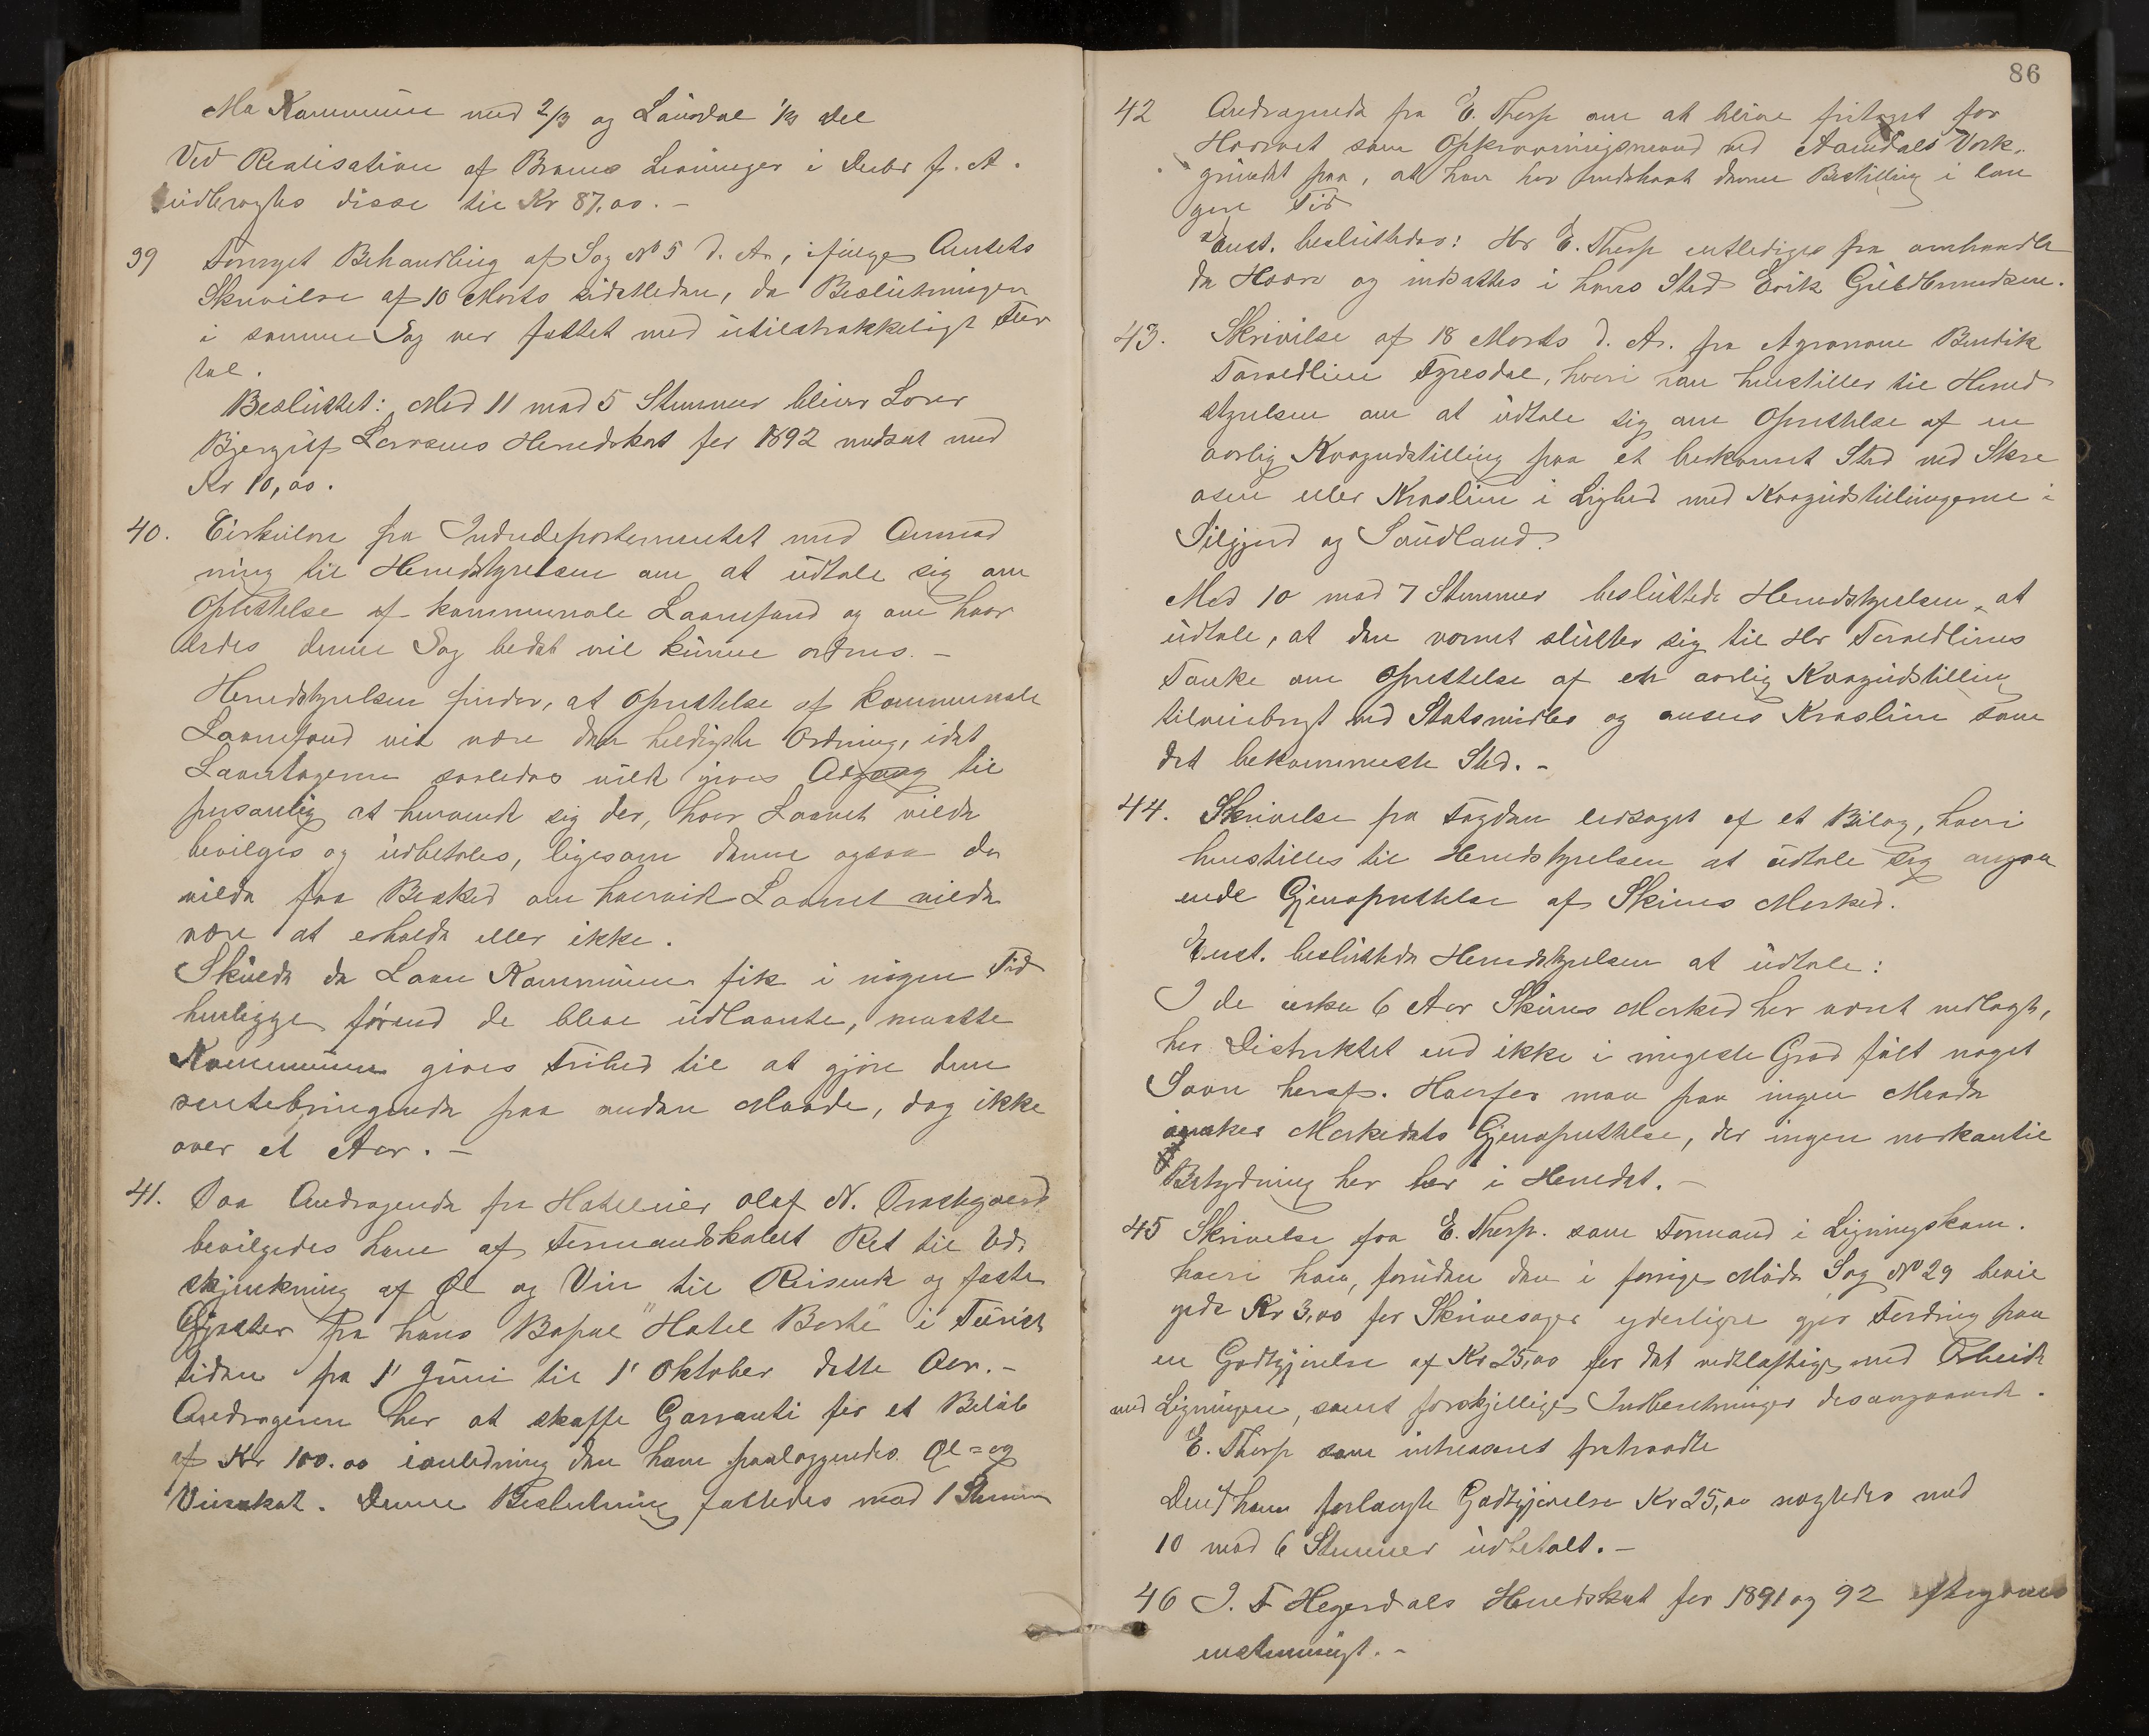 Mo Kommune med 2/3 og Laurdal 1/3 del
Ved Realisation af Brama Løsninger i Decbr f. A.
indbragtes disse til Kr 87,00. –
39 Fornyet Behandling af Sag № 5 d. A., ifølge Amtets
Skrivelse af 10 Marts sidstleden, da Beslutningen
i samme Sag var fattet med utilstrækkeligt Fler
tal.
Besluttet: Med 11 mod 5 Stemmer blev Lærer
Bjergulf Larsens Herredskat for 1892 nedsat med
Kr 10,00.
40. Cirkulære fra Indredepartementet med Anmod
ning til Herredsstyrelsen om at udtale sig om
Oprettelse af kommunale Laanefond og om hvor
ledes denne Sag bedst vil kunne ordnes. –
Herredsstyrelsen finder, at Oprettelse af kommunale
Laanefond vil være den heldigste Ordning, idet
Laantagerne saaledes vilde gives Adgang til
personlig at henvende sig der, hvor Laanet vilde
bevilges og udbetales, ligesom denne ogsaa da
vilde faa Besked om hvorvidt Laanet vilde
være at erholde eller ikke.
Skulde de Laan Kommunen fik i nogen Tid
henligge førend de bleve udlaante, maatte
Kommunen gives Frihed til at gjøre dem
rentebringende paa anden Maade, dog ikke
over et Aar. –
41. Paa Andragende fra Hotelleier Olaf N. Træthgaard
bevilgedes ham af Formandskabet Ret til Ud-
skjenkning af Øl og Vin til Reisende og faste
Gjæster fra hans Bopæl "Hotel Børte" i Turist
tiden fra 1' Juni til 1' Oktober dette Aar. –
Andrageren har at skaffe Garranti for et Beløb
af Kr 100.00 i anledning den ham paaliggendes Øl= og
Vinskat. Denne Beslutning fattedes mod 1 Stemme
86
42 Andragende fra E. Thorp om at blive fritaget for
Hvervet som Opkrævningsmand ved Aamdals Værk,
grundet paa, at han har indehavt denne Bestilling i læn
gere Tid
Enst. besluttedes: Hr E. Thorp entlediges fra omhandle
de Hverv og indsættes i hans Sted Erik Guldbrandsen.
43. Skrivelse af 18 Marts d. A. fra Agronom Bendik
Tarvedlien Fyresdal, hvori han henstiller til Herred
styrelsen om at udtale sig om Oprettelse af en
aarlig Kvægudstilling paa et bekvemt Sted ved Skre
osen eller Kraslien i Lighed med Kvægudstillingerne i
Siljgjord og Saudland.
Med 10 mod 7 Stemmer besluttede Herredsstyrelsen at
udtale, at den varmt slutter sig til Hr Tarvedliens
Tanke om Oprettelse af en aarlig Kvægudstilling
tilveiebragt ved Statsmidler og ansees Kraslien som
det bekvemmeste Sted. –
44. Skrivelse fra Fogden ledsaget af et Bilag, hvori
henstilles til Herredsstyrelsen at udtale sig angaa
ende Gjenoprettelse af Skiens Marked.
Enst. besluttede Herredsstyrelsen at udtale:
I de cirka 6 Aar Skiens Marked har været nedlagt,
har Distriktet end ikke i ringeste Grad følt noget
Savn heraf. Hvorfor man paa ingen Maade
ønsker Markedets Gjenoprettelse, der ingen merkantil
Betydning har her i Herredet. –
45 Skrivelse fra E. Thorp. som Formand i Ligningskom.
hvori han, foruden den i forrige Møde Sag № 29 bevil
gede Kr 3,00 for Skrivesager yderligre gjør Fordring paa
en Godtgjørelse af Kr 25,00 for det vidtløftige med Arbeide
med Ligningen, samt forskjellige Indberetninger desangaaende.
E. Thorp som interesseret fratraadte
Den af ham forlangte Godtgjørelse Kr 25,00 nægtedes med
10 mod 6 Stemmer udbetalt. –
46 J. T Hegerdals Herredskat for 1891 og 92 eftergaves
enstemmigt. –